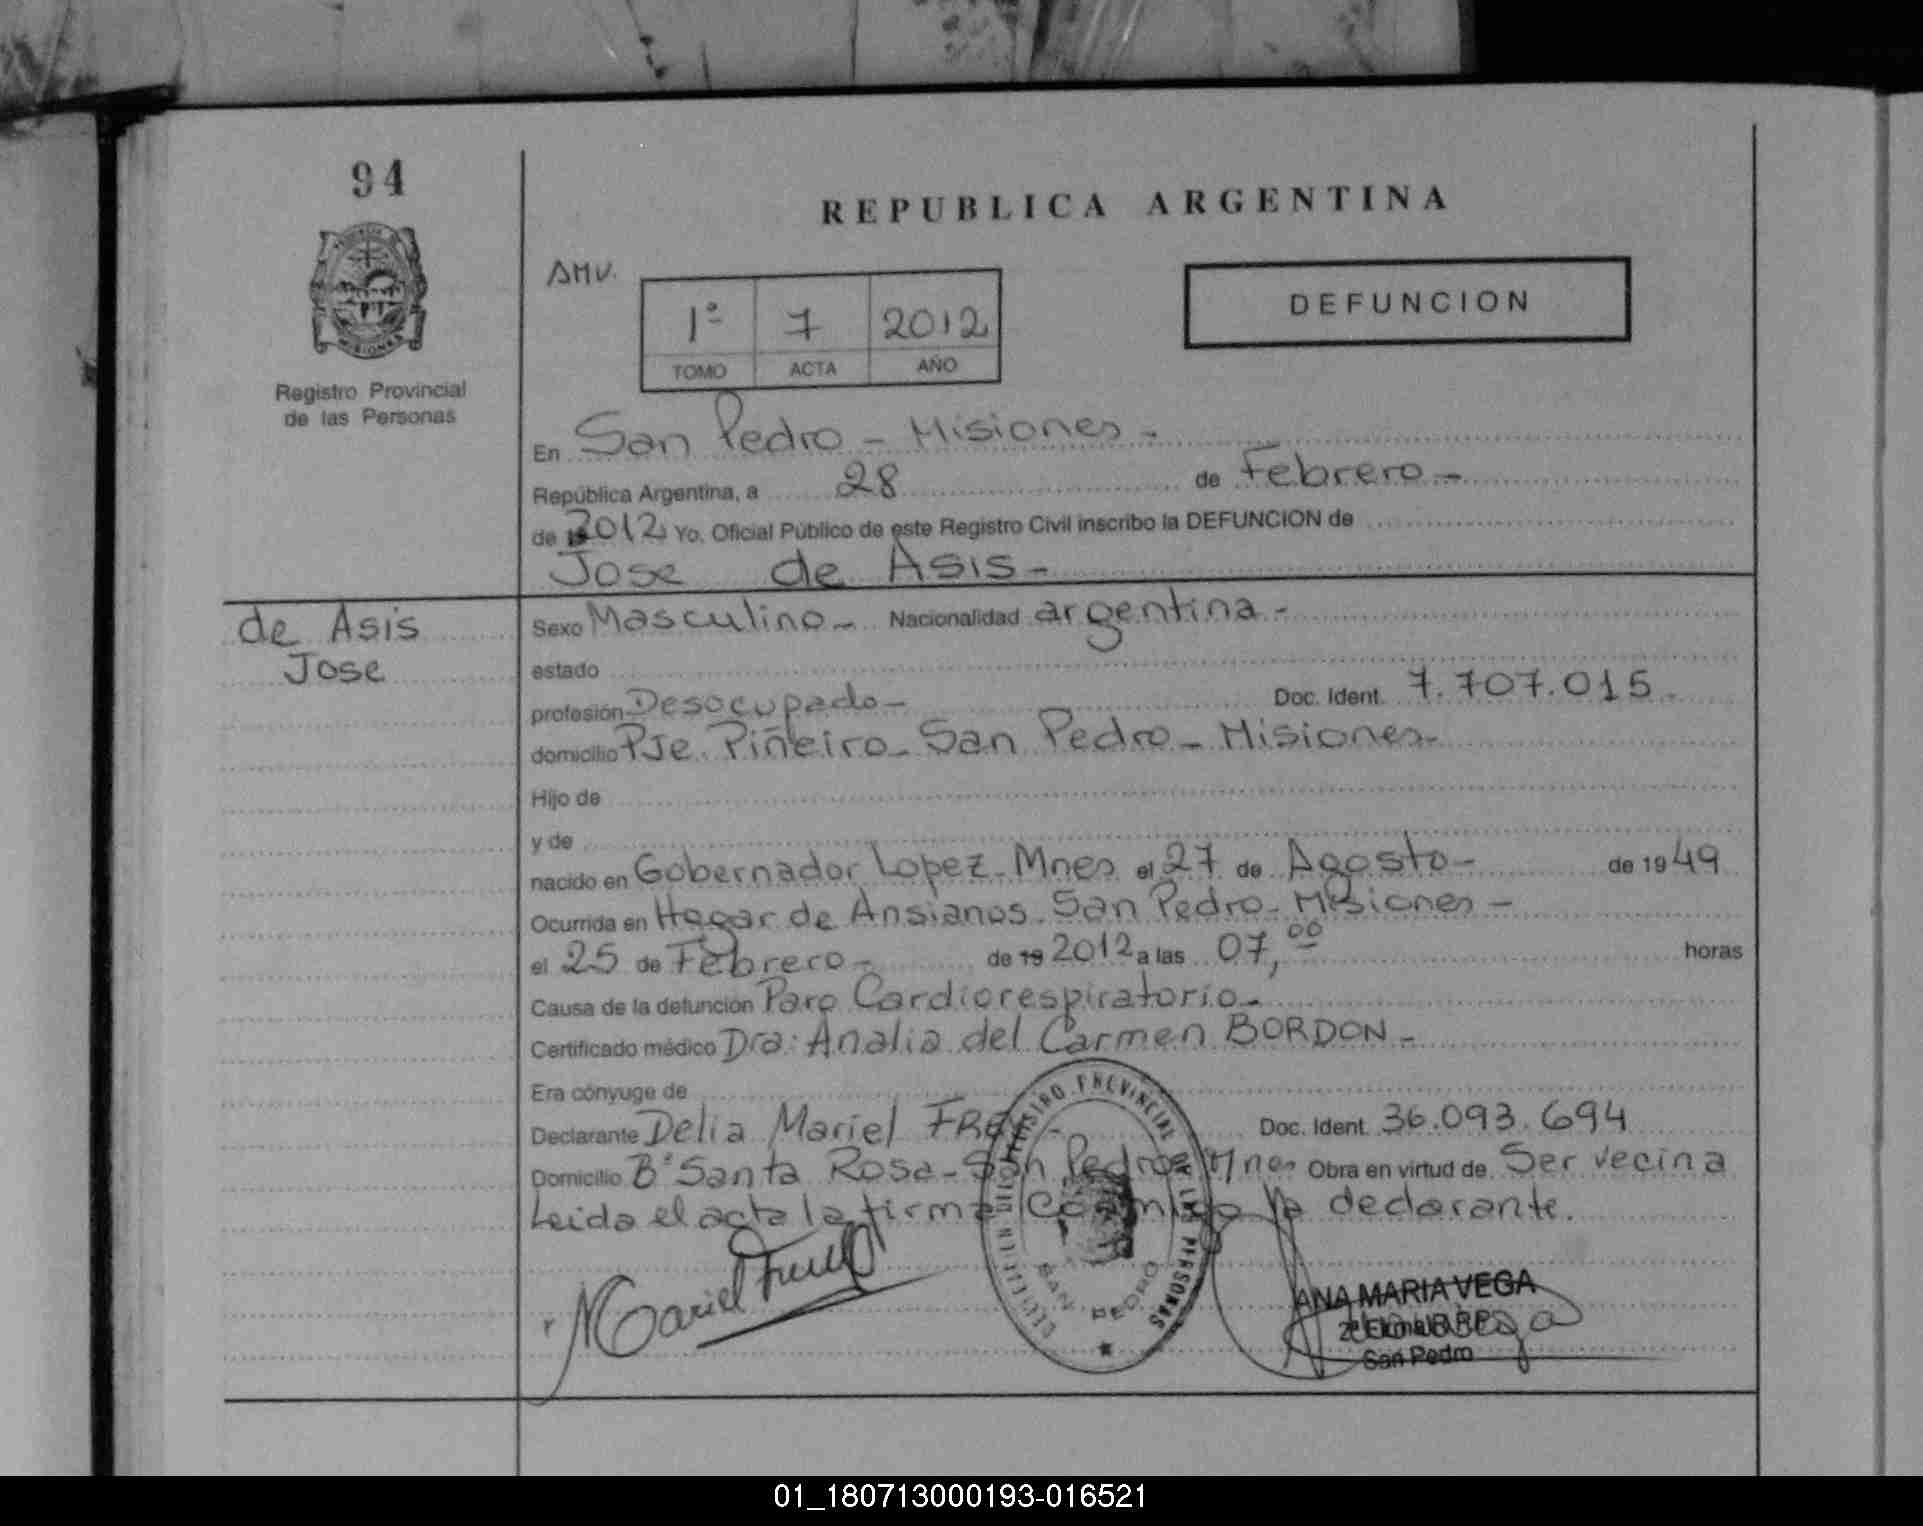 94
REPUBLICA ARGENTINA
AMV.
1º 7 2012
TOMO ACTA AÑO
DEFUNCION
MISIONES
Registro Provincial
de las Personas
En San Pedro - Misiones -
República Argentina, a 28 de Febrero -
de 2012 Yo, Oficial Público de este Registro Civil inscribo la DEFUNCION de
Jose de Asis -
de Asis
Jose
Sexo Masculino - Nacionalidad argentina -
estado
profesión Desocupado - Doc. Ident. 7.707.015 -
domicilio Pje. Piñeiro - San Pedro - Misiones -
Hijo de
y de
nacido en Gobernador Lopez - Mnes el 27 de Agosto - de 1949
Ocurrida en Hogar de Ansianos - San Pedro - Misiones -
el 25 de Febrero - de 19 2012 a las 07,00 horas
Causa de la defunción Paro Cardiorespiratorio -
Certificado médico Dra: Analia del Carmen BORDON -
Era cónyuge de
Declarante Delia Mariel Doc. Ident. 36.093.694
Domicilio Bº Santa Rosa - San Pedro Mnes Obra en virtud de Ser vecina
Leida el acta la firma Conmigo la declarante.
REGISTRO PROVINCIAL DE LAS PERSONAS
SAN PEDRO
Mariel
ANA MARIA VEGA
San Pedro
01_180713000193-016521